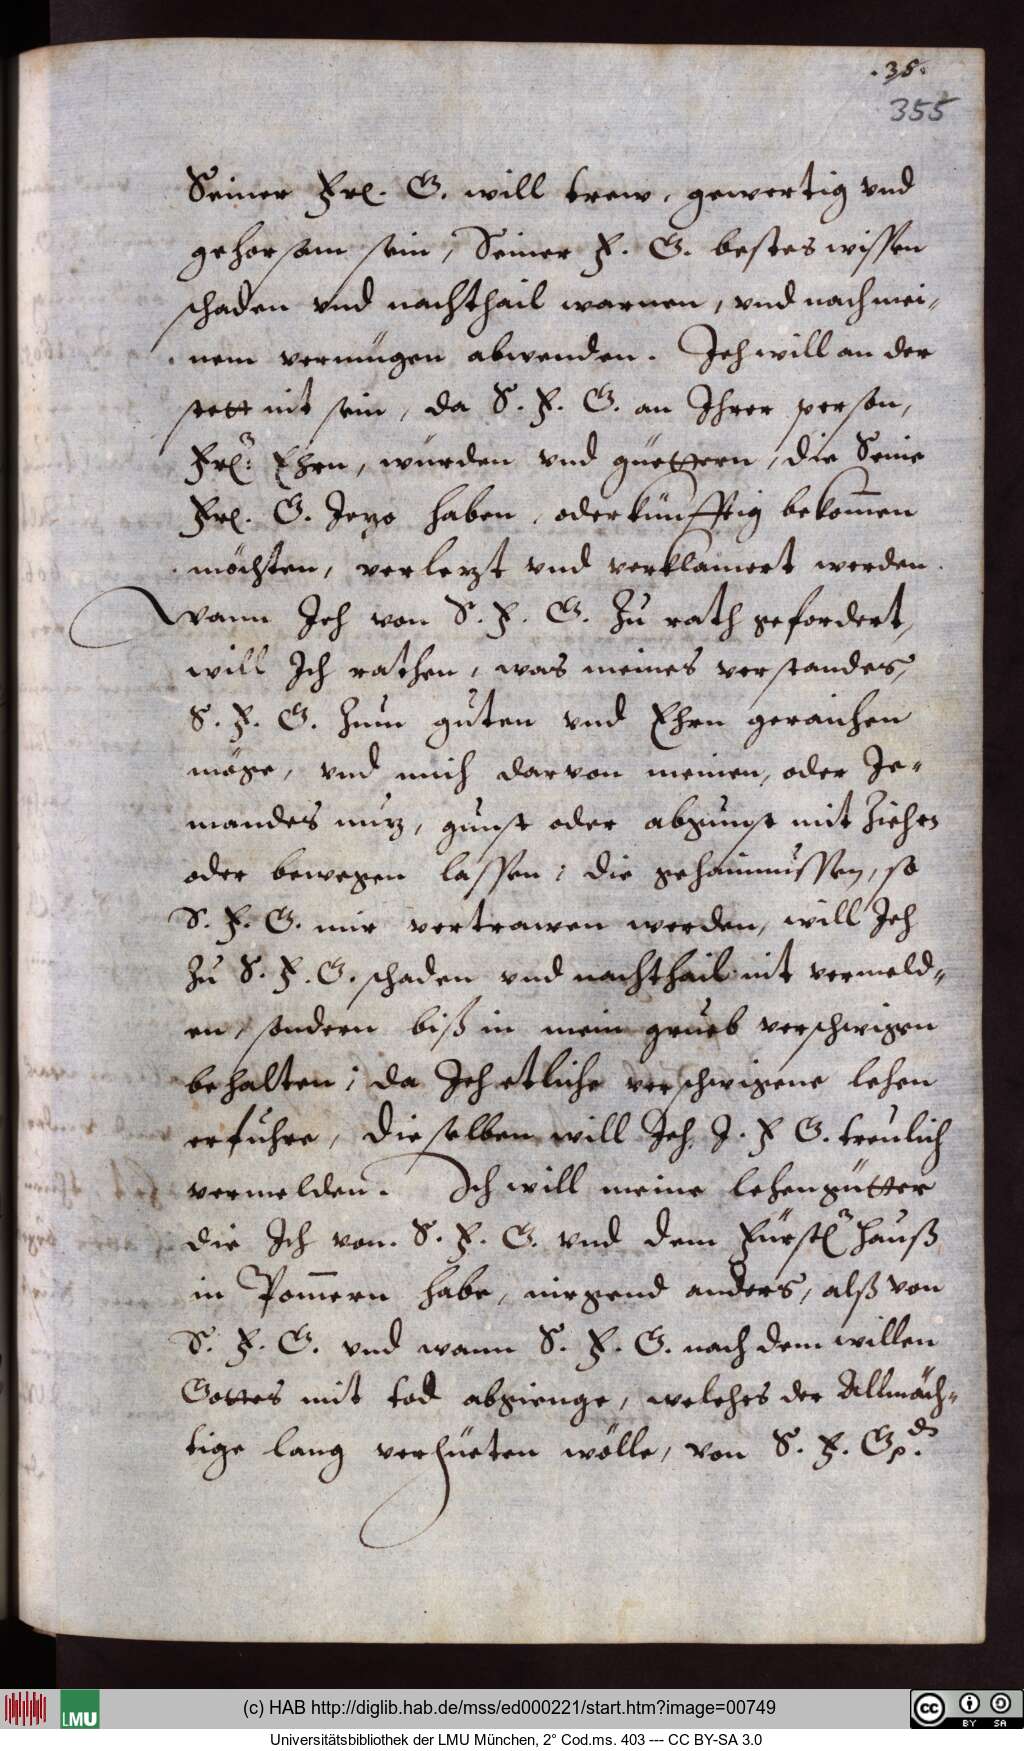 .38.
355
Seiner Frl. G. will trew, gewertig vnd
gehorsam sein, Seiner F. G. bestes wissen
schaden vnd nachthail warnen, vnd nach mei,
nem vermügen abwenden. Ich will an der
stett nit sein, da S. F. G. an Ihrer person,
Frl: Ehrn, würden vnd güettern, die Seine
Frl. G. Jezo haben, oder künfftig bekom̄en
möchsten, verlezt vnd verklainert werden.
Wann Ich von S. F. G. Zu rath gefordert,
will Ich rathen, was meines verstandes,
S. F. G. Zum guten vnd Ehrn geraichen
möge, vnd mich darvon meinen, oder Je-
mandes nuz, gunst oder abgunst nit Ziehen
oder bewegen lassen; die gehaimnussen, so
S. F. G. mir vertrawen werden, will Ich
Zu S. F. G. schaden vnd nachthail nit vermeld-
en, sondern biß in mein grueb verschwigen
behalten; da Ich etliche verschwigene lehen
erfuhre, dieselben will Ich J. F G. treulich
vermelden. Ich will meine lehengütter
die Ich von. S. F. G. vnd dem Fürstl Hauß
in Pom̄ern habe, nirgend anders, alß von
S. F. G. vnd wann S. F. G. nach dem willen
Gottes mit tod abgienge, welches der Allmäch-
tige lang verhüeten wölle, von S. F. G.
(c) HAB http://diglib.hab.de/mss/ed000221/start.htm?image=00749
LMU
cc BY SA
Universitätsbibliothek der LMU München, 2° Cod.ms. 403 --- CC BY-SA 3.0